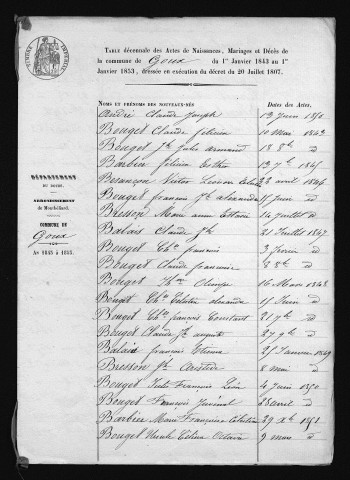 TABLE décennale des Actes de Naissances, Mariages et Décès de
la commune de Goux du 1er Janvier 1843 au 1er
Janvier 1853, dressée en exécution du décret du 20 Juillet 1807.
DÉPARTEMENT
DU DOUBS.
ARRONDISSEMENT
de Montbéliard.
COMMUNE DU
Goux
AN 1843 à 1853.
NOMS ET PRÉNOMS DES NOUVEAUX-NÉS Dates des Actes.
André Claude Joseph 12 Juin 1851
Bouget Claude 10 Mars 1843
Bouget Jh Jules armand 18 8bre d
Barbier 12 7bre 1845
Besançon Victor 22 avril 1846
Bouget françois Jh alexandre 11 Juin d
Bresson Marie anne 14 Juillet d
Balais Claude Jh 21 Juillet 1847
Bouget Ch françois 3 février d
Bouget Claude françoise 8 8bre d
Bouget Olimpe 16 Mars 1848
Bouget Ch Célestin 11 Juin d
Bouget Ch françois Constant 21 7bre d
Bouget Claude Jh august 27 9bre d
Balais françois Etienne 25 Janvier 1849
Bresson Jh Aristide 8 mai d
Bouget François Léon 4 Juin 1850
Bouget François Juvénal 28 avril d
Barbier Marie Françoise Célestine 29 Xbre 1851
Bouget Célina Octavie 9 mars d